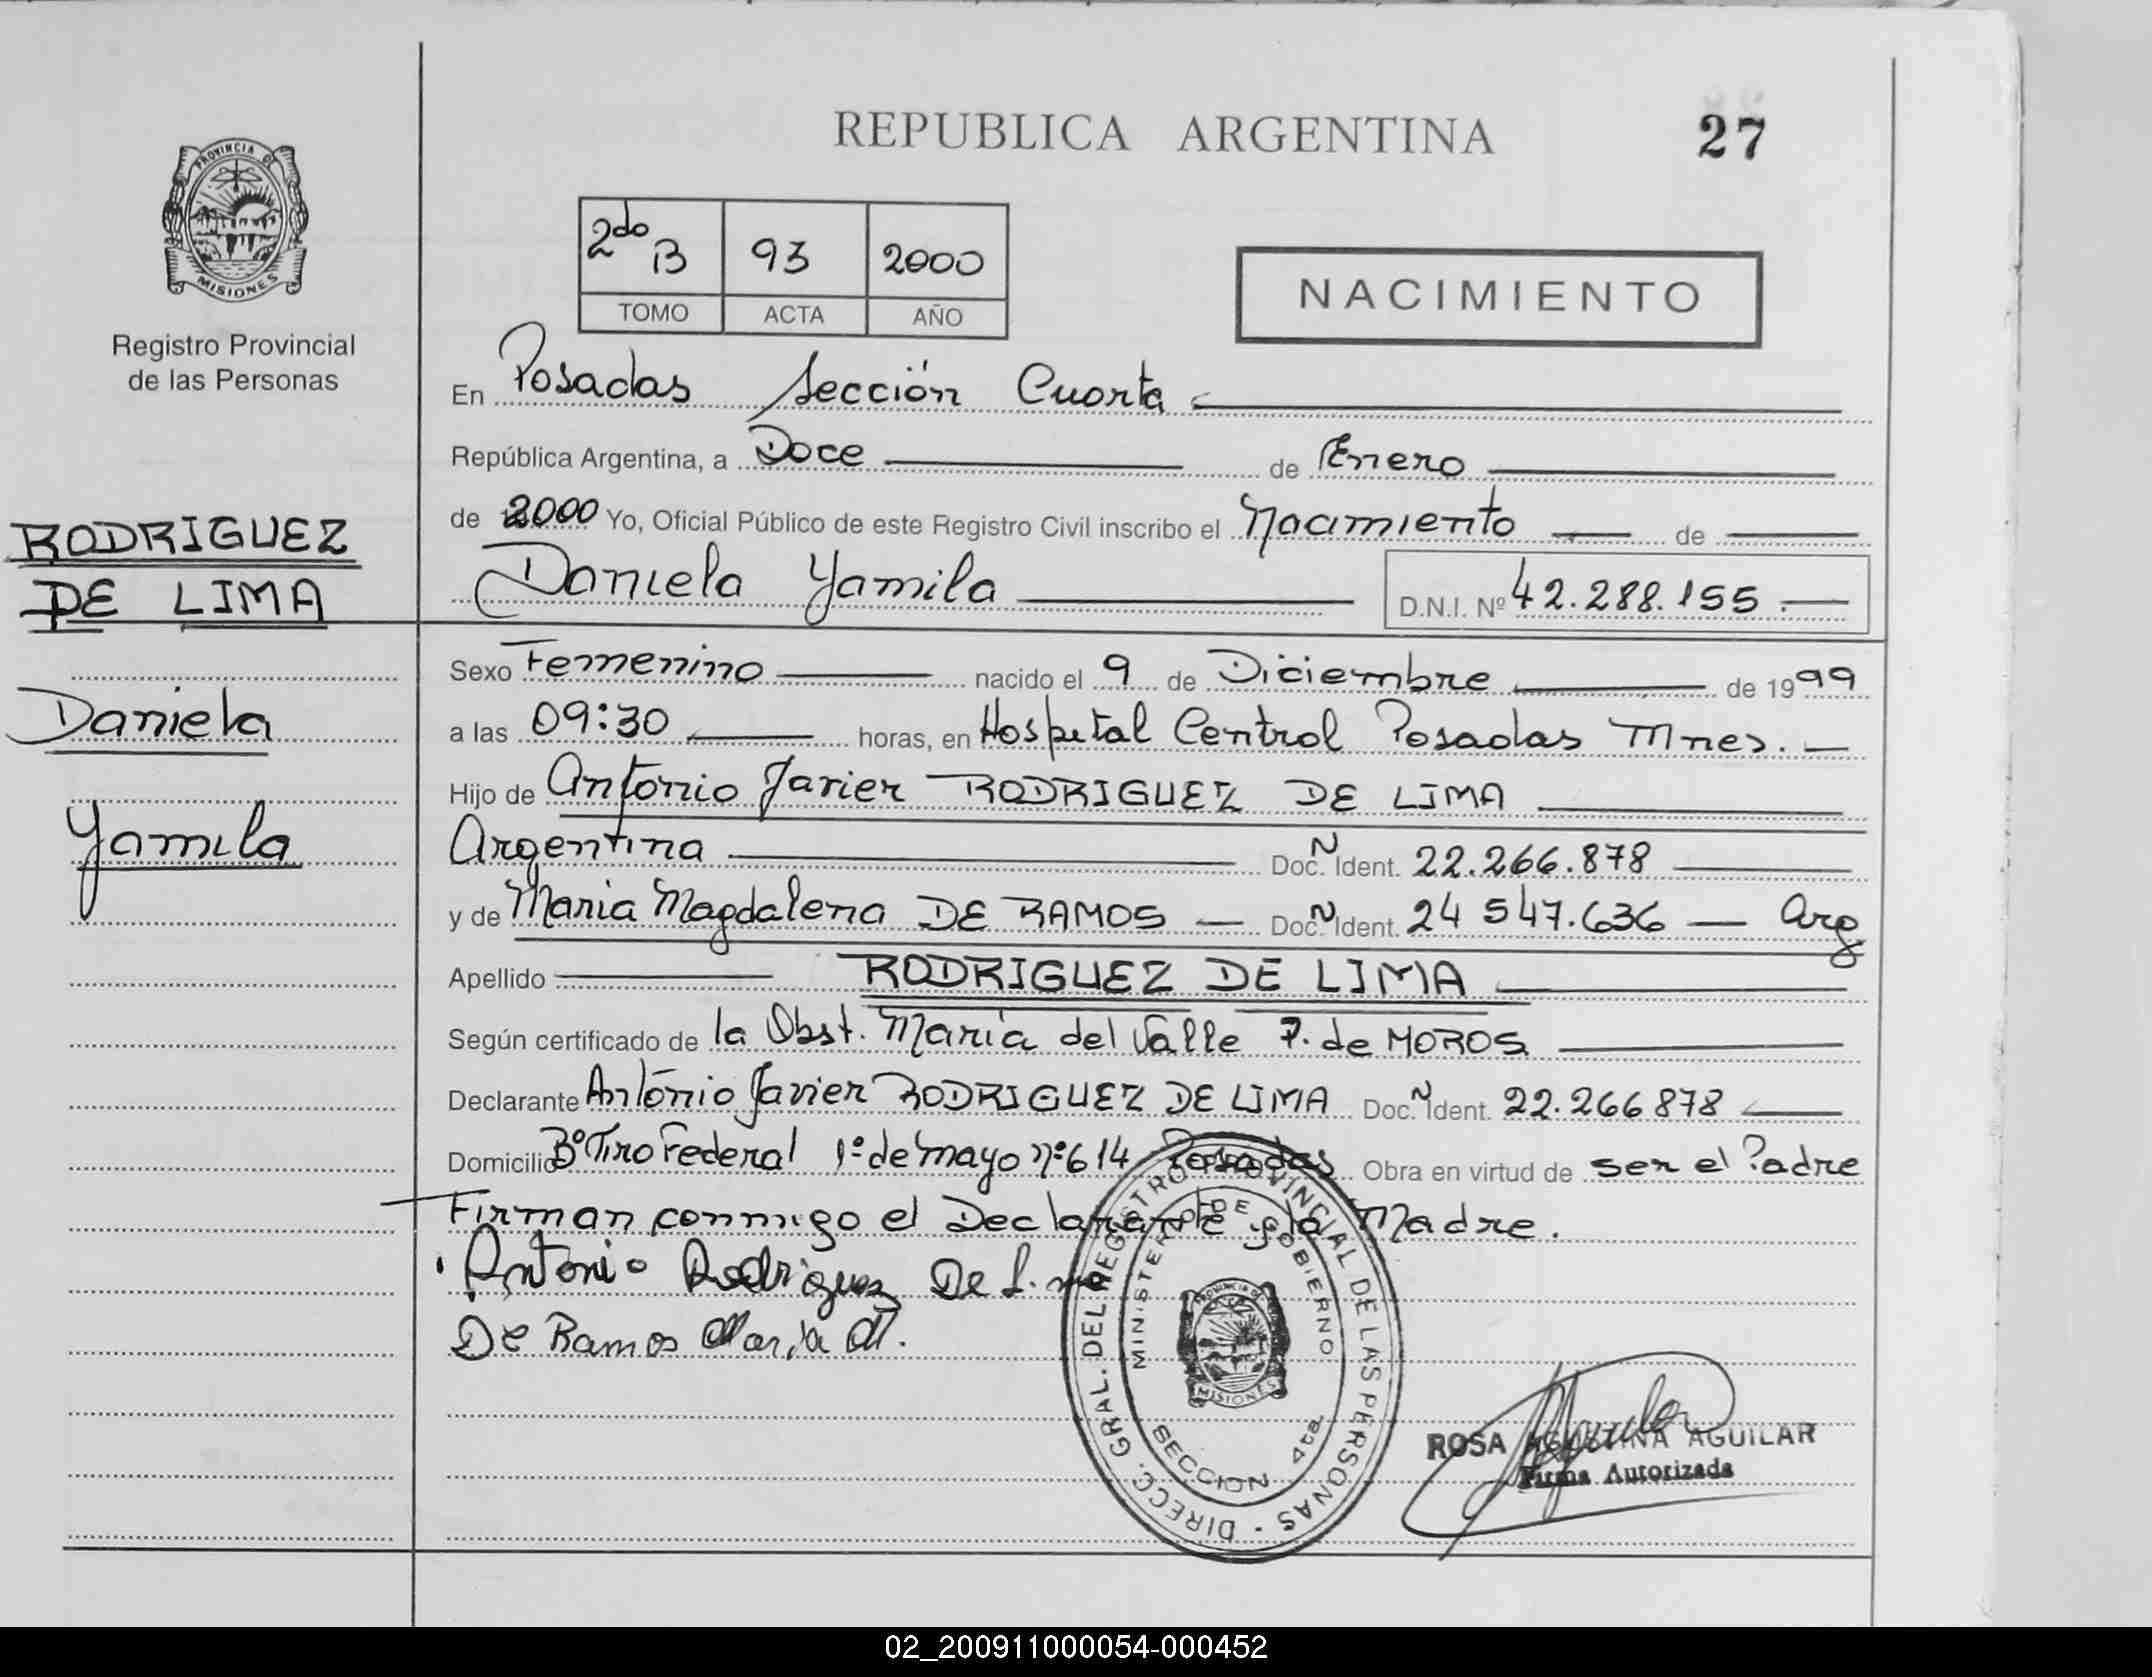 REPUBLICA ARGENTINA
27
PROVINCIA DE
MISIONES
Registro Provincial
de las Personas
2do B 93 2000
TOMO ACTA AÑO
NACIMIENTO
En Posadas Sección Cuarta
República Argentina, a Doce de Enero
de 2000 Yo, Oficial Público de este Registro Civil inscribo el Nacimiento de
Daniela Yamila D.N.I. Nº 42.288.155.
RODRIGUEZ
DE LIMA
Daniela
Yamila
Sexo Femenino nacido el 9 de Diciembre de 1999
a las 09:30 horas, en Hospital Central Posadas Mnes.
Hijo de Antonio Javier RODRIGUEZ DE LIMA
Argentina Doc. N Ident. 22.266.878
y de Maria Magdalena DE RAMOS Doc. N Ident. 24 547.636 Arg
Apellido RODRIGUEZ DE LIMA
Según certificado de la Obst. María del Valle P. de MOROS
Declarante Antonio Javier RODRIGUEZ DE LIMA Doc. N Ident. 22.266878
Domicilio Bº Tiro Federal 1º de Mayo nº 614 Posadas Obra en virtud de ser el Padre
Firman conmigo el Declarante y la Madre.
Antonio Rodriguez De Lima
De Ramos Maria M.
DIRECC. GRAL. DEL REGISTRO PROVINCIAL DE LAS PERSONAS -
MINISTERIO DE GOBIERNO
PROVINCIA DE
MISIONES
SECCION 4ta
ROSA AGUSTINA AGUILAR
Firma Autorizada
02_200911000054-000452